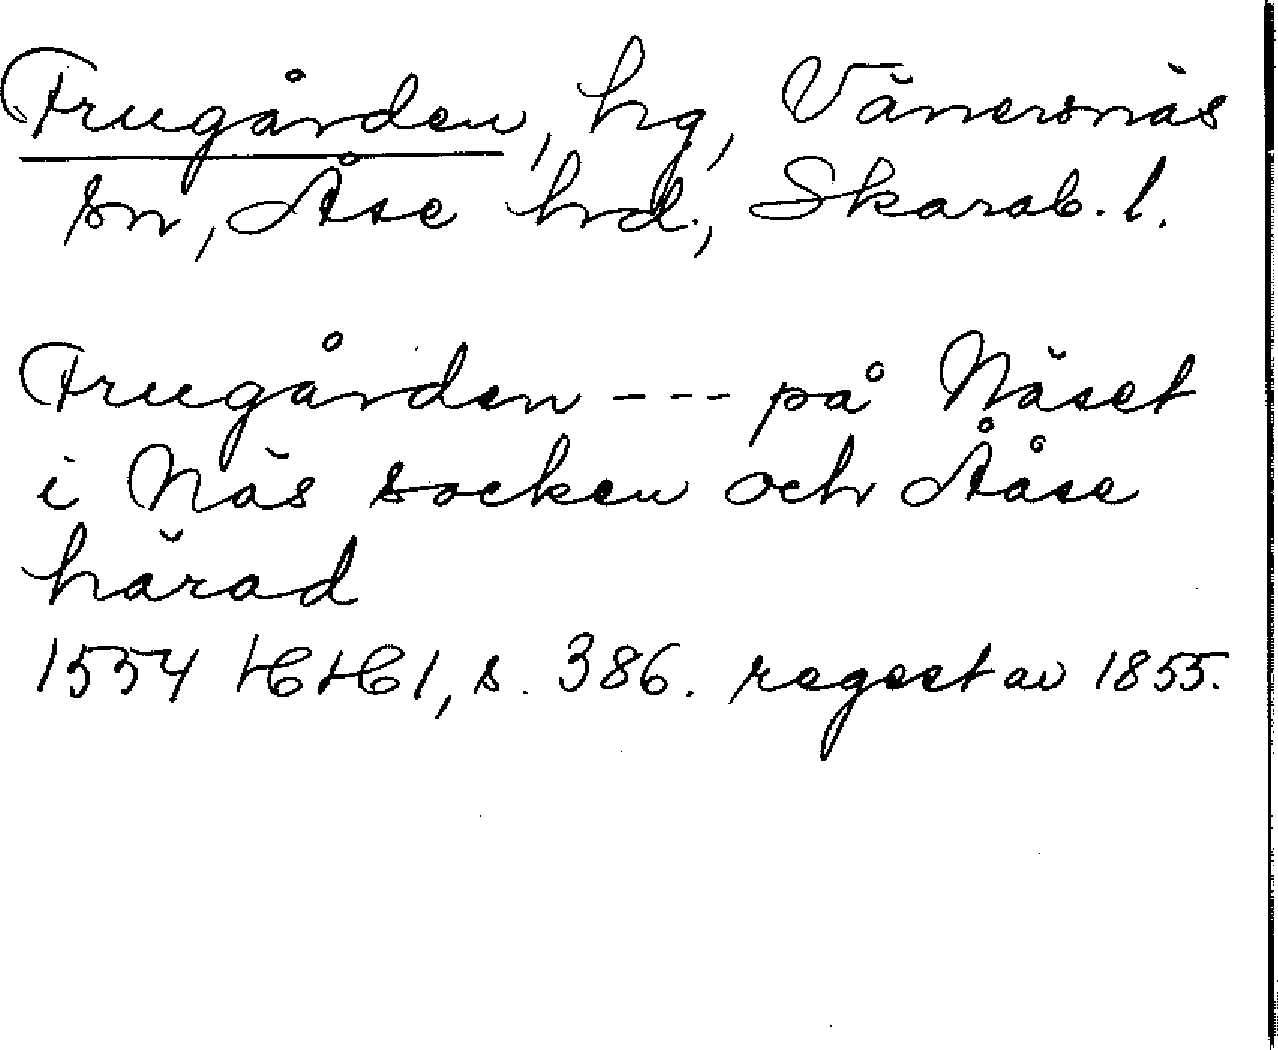 Frugården, hg, Vänersnäs
sn, Åse hd., Skarab. l.
Frugården --- på Näset
i Näs socken ochÅåse
härad
1554 HH 1, s. 386. regest av 1855.